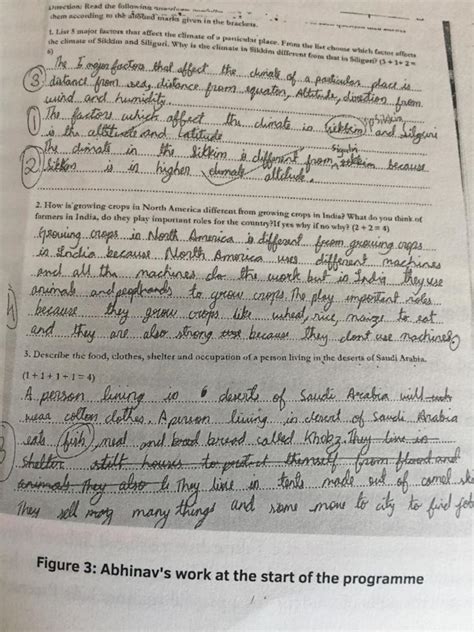 Direction: Read the following
them according to the allotted marks given in the brackets.
1. List 5 major factors that affect the climate of a particular place. From the list choose which factor affects
the climate of Sikkim and Siliguri. Why is the climate in Sikkim different from that in Siliguri? (3 + 1 + 2 =
6)
The 5 major factors that affect the climate of a particular place is
3 distance from sea, distance from equator, Altitude, direction from
wind and humidity.
1 The factors which affect the climate in Sikkim and Siliguri
is the altitude and Latitude
The climate in the Sikkim is different from because
2 is in higher climate altitude.
2. How is growing crops in North America different from growing crops in India? What do you think of
farmers in India, do they play important roles for the country? If yes why if no why? (2 + 2 = 4)
Growing crops in North America is different from growing crops
in India because North America uses different machines
and all the machines do the work but in India they use
animals and to grow crops. The play important roles
because they grow crops like wheat, rice, maize to eat
4 and they are also strong because they dont use machines
3. Describe the food, clothes, shelter and occupation of a person living in the deserts of Saudi Arabia.
(1 + 1 + 1 + 1 = 4)
A person living in deserts of Saudi Arabia will
wear cotton clothes. A person living in desert of Saudi Arabia
3 eats fish, meat and bread called Khobz. They live in
shelter stilt houses to protect themself from flood and
animals They also They live in tents made out of camel
They sell many things and some move to city to find
Figure 3: Abhinav's work at the start of the programme